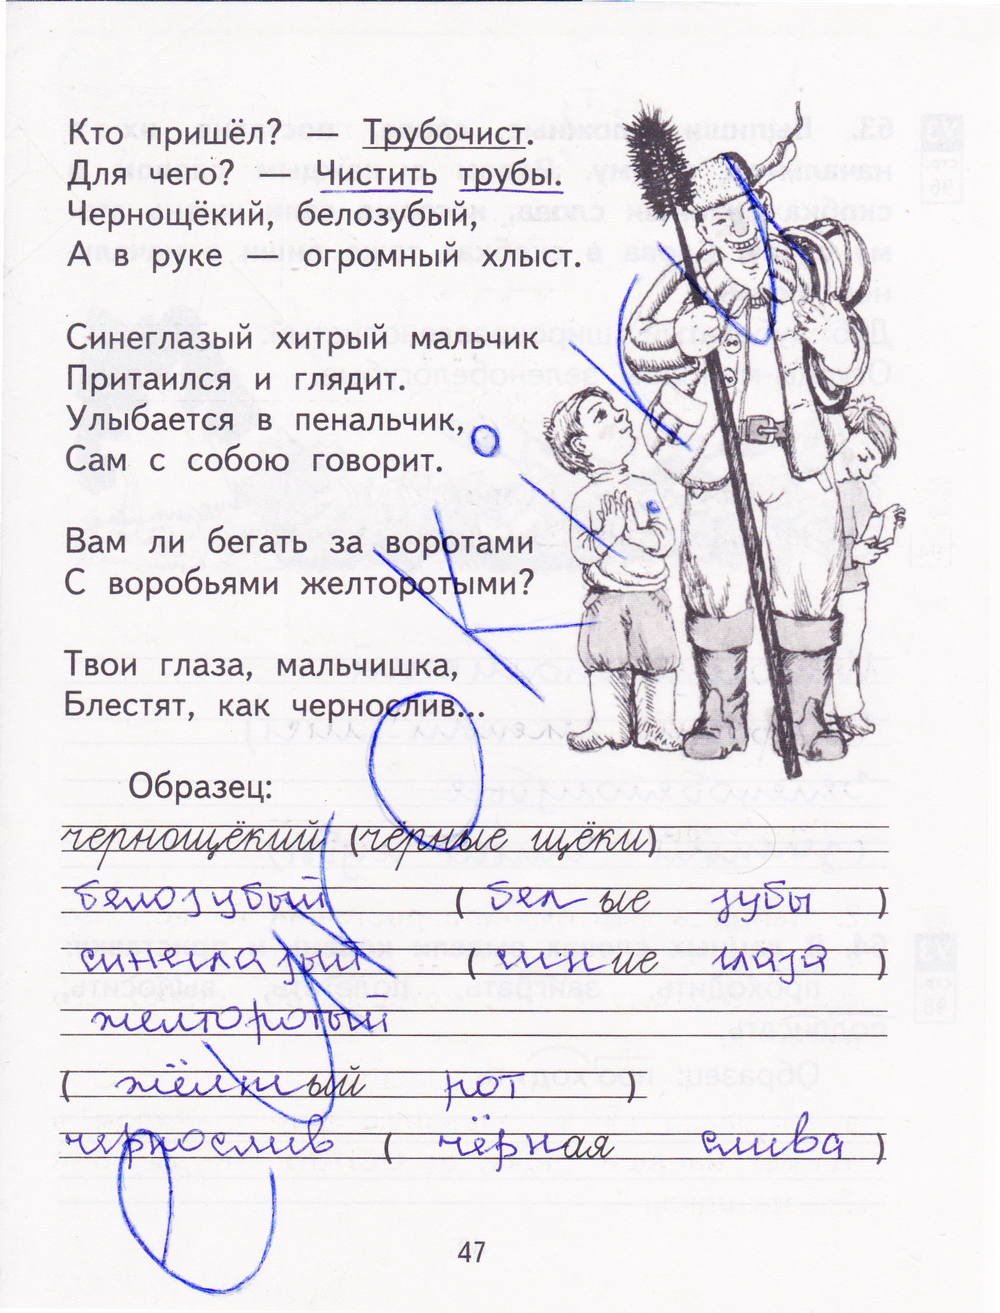 Кто пришёл? — Трубочист.
Для чего? Чистить трубы.
Чернощёкий, белозубый,
А в руке — огромный хлыст.
Синеглазый хитрый мальчик
Притаился и глядит.
Улыбается в пенальчик,
Сам с собою говорит.
Вам ли бегать за воротами
С воробьями желторотыми?
Твои глаза, мальчишка,
Блестят, как чернослив...
Образец:
чернощёкий (чёрные щёки)
белозубый ( белые зубы )
синеглазый ( синие глаза )
желторотый
( жёлтый рот )
чернослив ( чёрная слива )
47